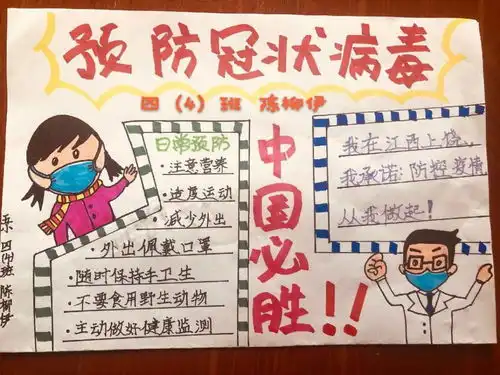 预防冠状病毒
四（4）班 陈柳伊
日常预防
·注意营养
·适度运动
·减少外出
·外出佩戴口罩
·随时保持手卫生
·不要食用野生动物
·主动做好健康监测
中国必胜!!
我在江西上饶,
我承诺:防控疫情
从我做起!
四(4)班 陈柳伊